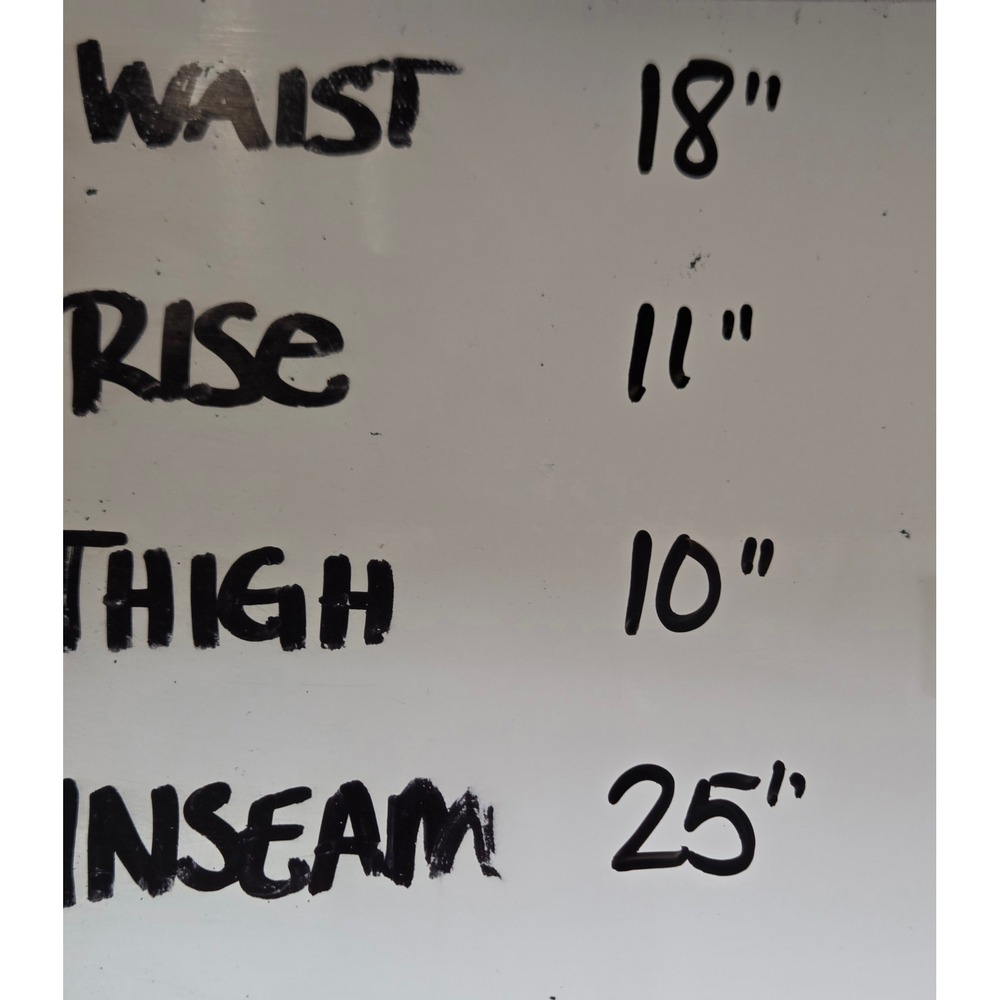 WAIST 18"
RISe 11"
THIGH 10"
INSEAM 25"